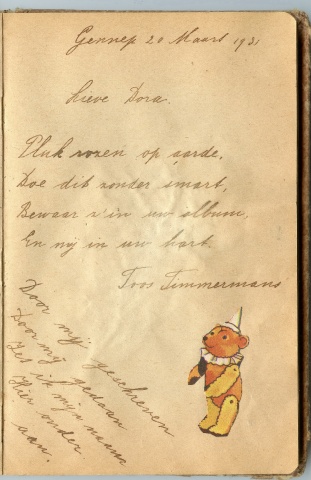 Gennep 20 Maart 1931
Lieve Dora.
Pluk rozen op aarde,
Doe dit zonder smart,
Bewaar z'in uw album,
En mij in uw hart.
Toos Timmermans
Door mij geschreven
Door mij gedaan
Zet ik mijn naam
Hier onder
aan.